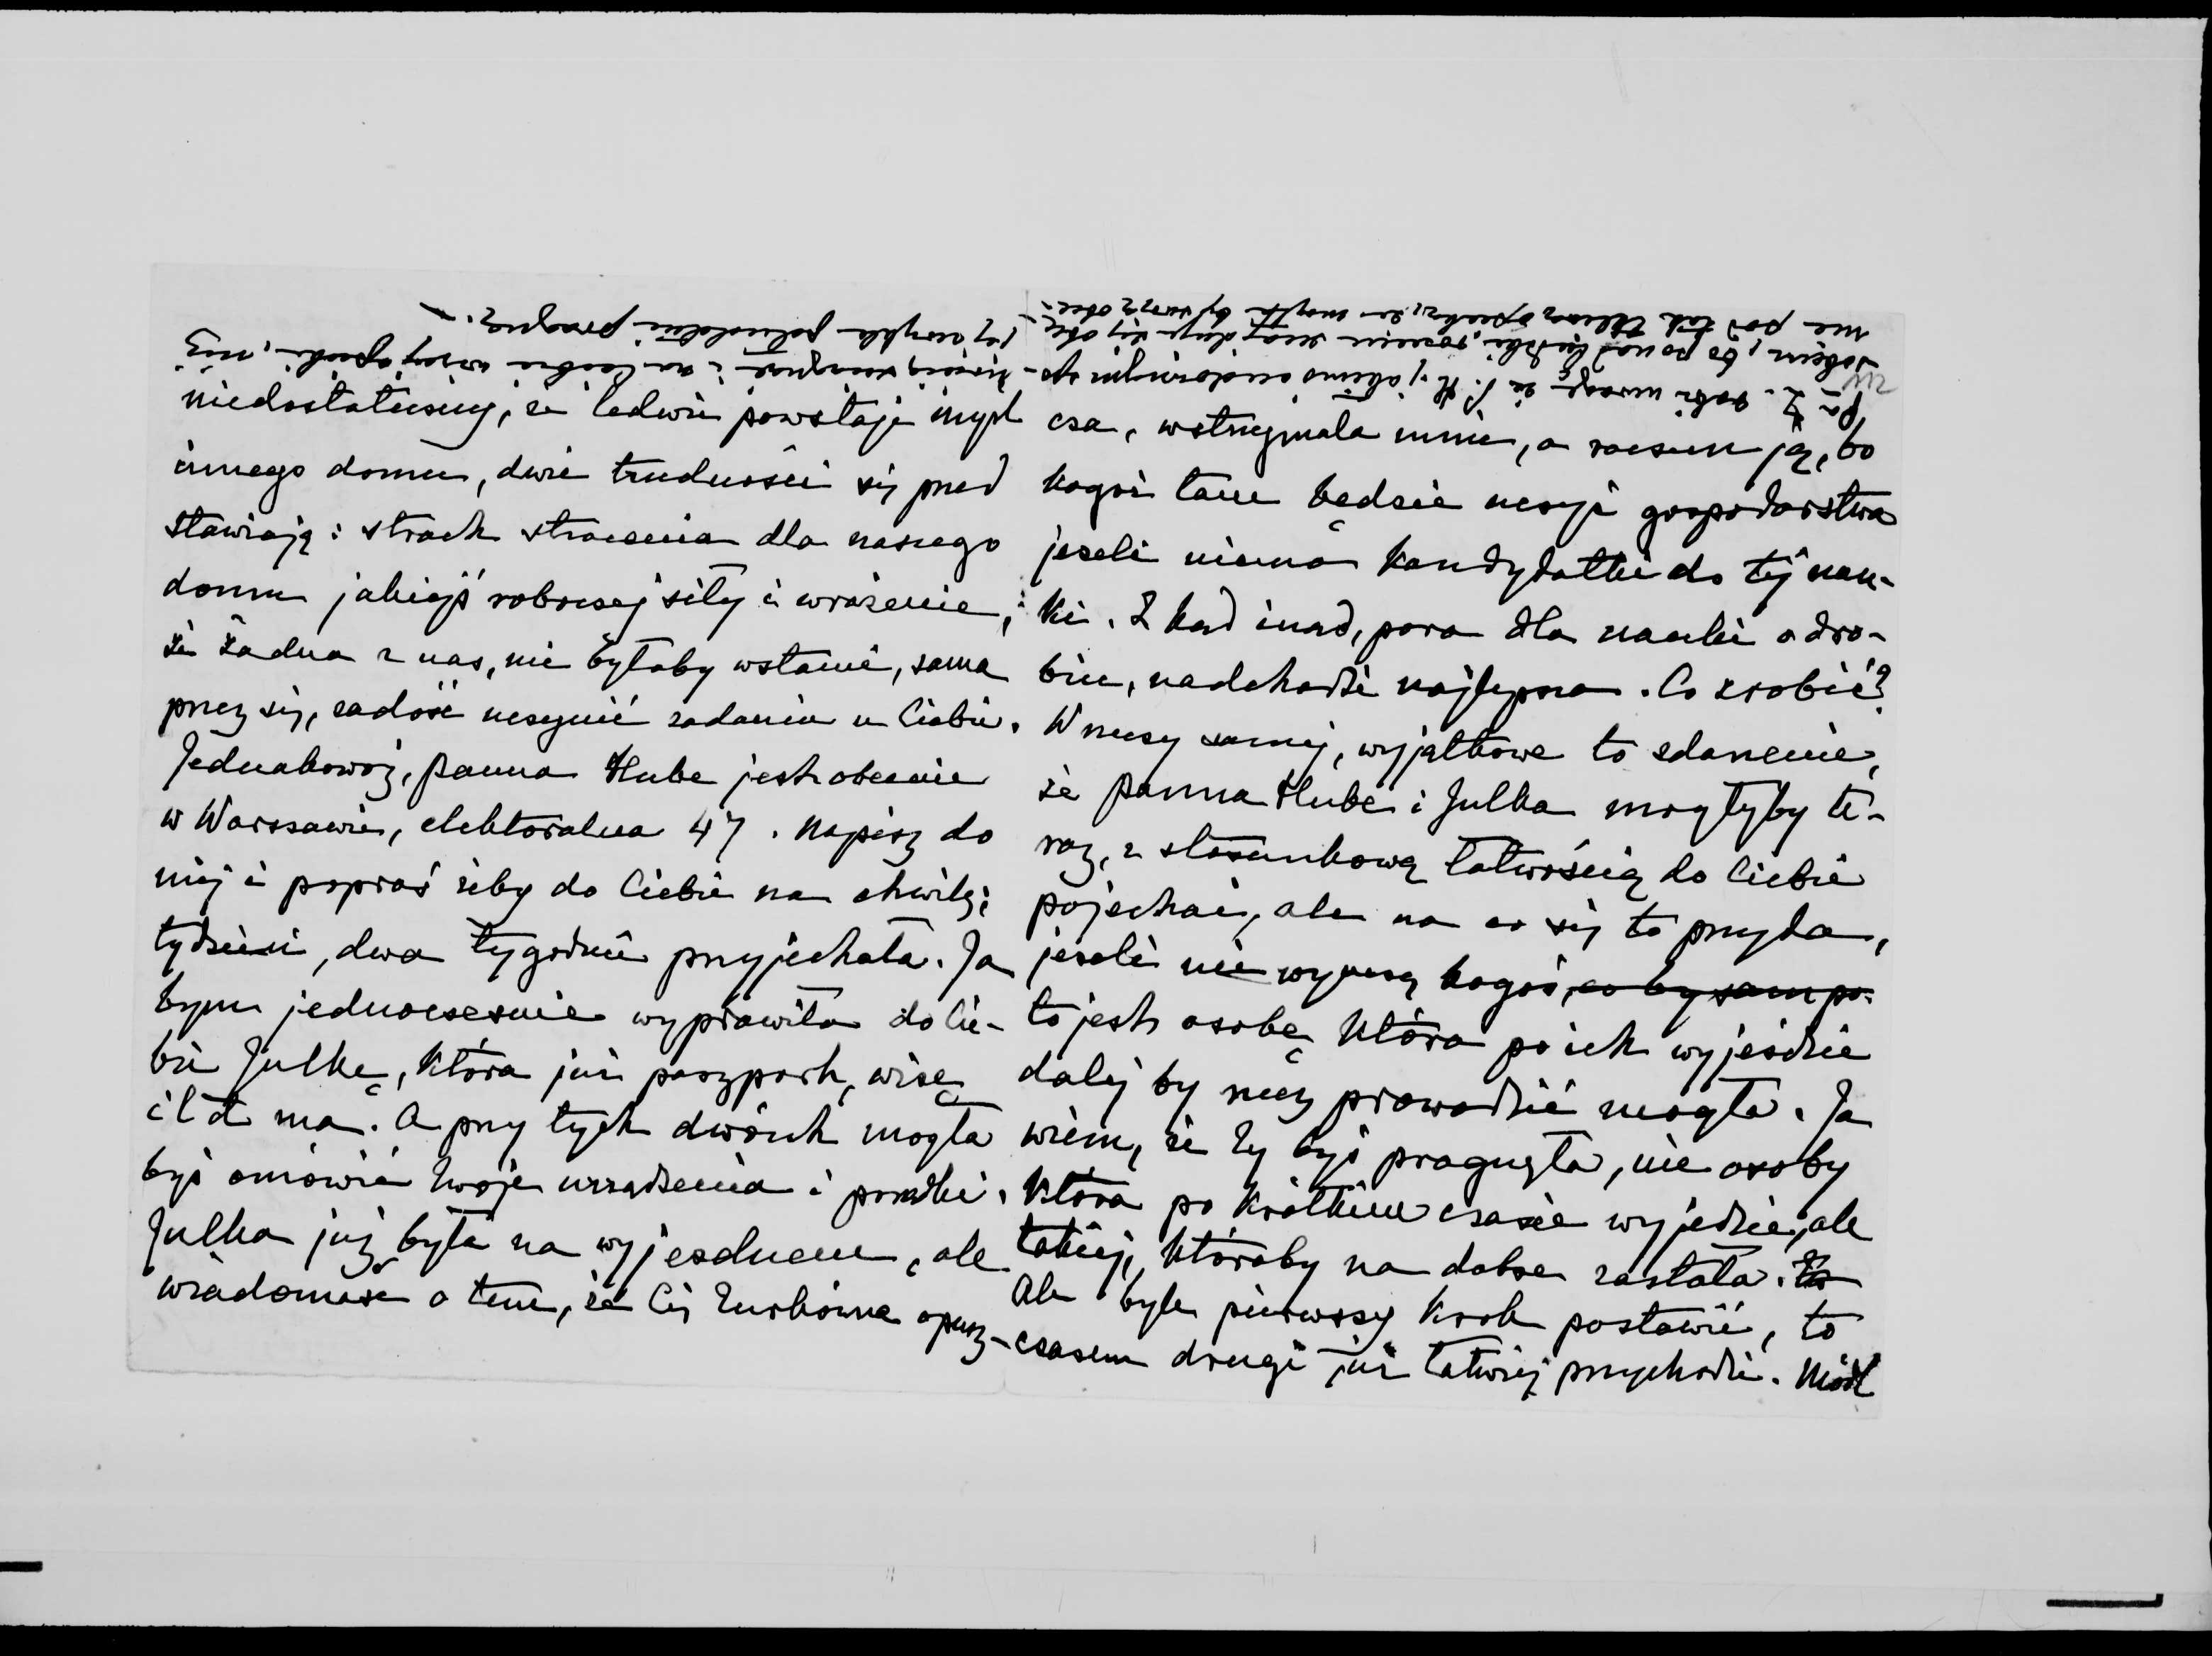 niedostateczny, że ledwie powstaje myśl
innego domu, dwie trudności się przed
stawiają: strach stracenia dla naszego
domu jakiejś roboczej siły i wrażenie,
że żadna z nas, nie byłaby wstanie, sama
przez się, zadość uczynić zadaniu u Ciebie.
Jednakowoż, panna Hube jest obecnie
w Warszawie, elektoralna 47. Napisz do
niej i poproś żeby do Ciebie na chwilę;
tydzień, dwa tygodnie przyjechała. Ja
bym jednocześnie wyprawiła do Cie-
bie Julkę, która już paszport, wizę
i t d ma. A przy tych dwóch mogła
byś omówić Twoje urządzenia i porządki.
Julka już była na wyjezdnem, ale
wiadomość o tem, że Cię Turkówna opusz-
cza, wstrzymała mnie, a raczem ją, bo
kogoż tam będzie uczyć gospodarstwa
jeżeli niema kandydatki do tej nau-
ki. Z kąd inąd, pora dla nauki o dro-
biu, nadchodzi najlepsza. Co zrobić?
W rzeczy samej, wyjątkowe to zdarzenie,
że panna Hube i Julka mogłyby te-
raz, z stosunkową łatwością do Ciebie
pojechać, ale na co się to przyda,
jeżeli nie wyuczą kogoś, co by sam po-
to jest osobę która po ich wyjeździe
dalej by rzecz prowadzić mogła. Ja
wiem, że Ty byś pragnęła, nie osoby
która po krótkim czasie wyjedzie, ale
takiej, któraby na dobre została. To
Ale byle pierwszy krok postawić, to
czasem drugi już łatwiej przychodzi. Módl